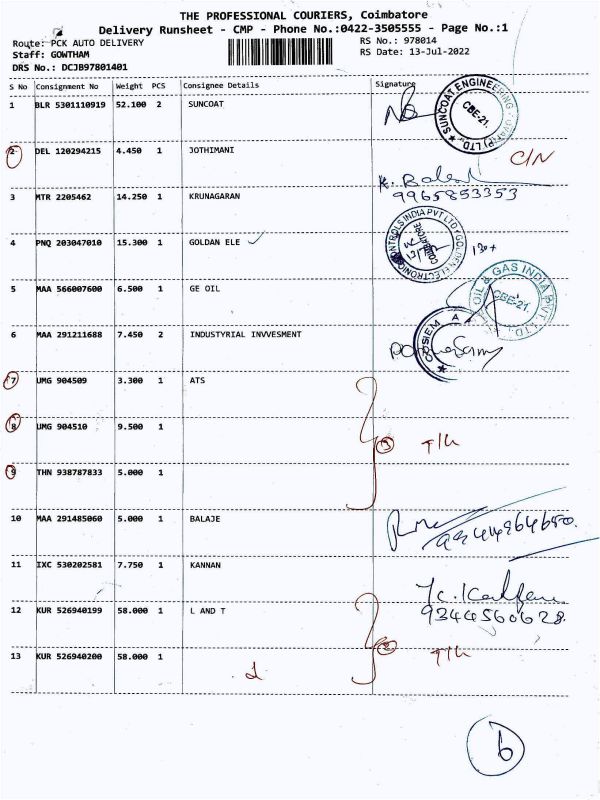 THE PROFESSIONAL COURIERS, Coimbatore
Delivery Runsheet - CMP - Phone No.:0422-3505555 - Page No.:1
Route: PCK AUTO DELIVERY
Staff: GOWTHAM
DRS No.: DCJB97801401
RS No.: 978014
RS Date: 13-Jul-2022
S No Consignment No Weight PCS Consignee Details Signature
1 BLR 5301110919 52.100 2 SUNCOAT
SUNCOAT ENGINEERING (P) LTD. CBE-21.
2 DEL 120294215 4.450 1 JOTHIMANI C/N
9965853353
3 MTR 2205462 14.250 1 KRUNAGARAN
4 PNQ 203047010 15.300 1 GOLDAN ELE
GOLDEN ELECTRONIC CONTROLS INDIA PVT LTD COIMBATORE
5 MAA 566007600 6.500 1 GE OIL
OIL & GAS INDIA PVT. LTD. CBE-21.
6 MAA 291211688 7.450 2 INDUSTYRIAL INVVESMENT
COSIEMA
7 UMG 904509 3.300 1 ATS
8 UMG 904510 9.500 1
3
9 THN 938787833 5.000 1
10 MAA 291485060 5.000 1 BALAJE
11 IXC 530202581 7.750 1 KANNAN
9344560628
12 KUR 526940199 58.000 1 L AND T
2
13 KUR 526940200 58.000 1
6